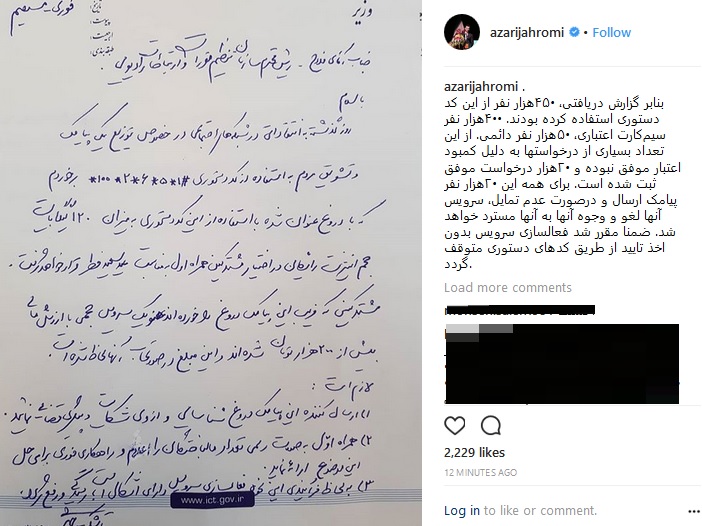 وزیر
تاریخ:
پیوست:
اهمیت:
طبقه‌بندی:
فوری مستقیم
جناب آقای فلاح - رئیس محترم سازمان تنظیم مقررات و ارتباطات رادیویی
با سلام
روز گذشته با انتقاداتی در شبکه‌های اجتماعی در خصوص توزیع یک پیامک
و تشویق مردم به استفاده از کد دستوری #۱*۵*۶*۲*۱۰۰* برخوردم
که با دروغ عنوان شده با استفاده از این کد دستوری به میزان ۱۲۰ گیگابایت
حجم اینترنت رایگان در اختیار مشترکین همراه اول به مناسبت عید سعید فطر قرار خواهد گرفت.
مشترکینی که فریب این پیامک دروغ را خورده‌اند یک سرویس حجمی با ارزش مالی
بیش از ۲۰۰ هزار تومان شده‌اند و این مبلغ در صورتحساب آنها لحاظ شده است.
لازم است:
۱) ارسال کننده این پیامک دروغ شناسایی و از وی شکایت و پیگیری قضایی نمایید.
۲) همراه اول به صورت رسمی تعداد مالباختگان را اعلام و راهکاری فوری برای حل
این موضوع ارائه نماید.
۳) به لحاظ فرآیندی این نحوه فعالسازی سرویس دارای اشکال است
www.ict.gov.ir
azarijahromi • Follow
azarijahromi .
بنابر گزارش دریافتی، ۴۵۰هزار نفر از این کد
دستوری استفاده کرده بودند. ۴۰۰هزار نفر
سیم‌کارت اعتباری، ۵۰هزار نفر دائمی. از این
تعداد بسیاری از درخواستها به دلیل کمبود
اعتبار موفق نبوده و ۲۰هزار درخواست موفق
ثبت شده است. برای همه این ۲۰هزار نفر
پیامک ارسال و درصورت عدم تمایل، سرویس
آنها لغو و وجوه آنها به آنها مسترد خواهد
شد. ضمنا مقرر شد فعالسازی سرویس بدون
اخذ تایید از طریق کدهای دستوری متوقف
گردد.
Load more comments
2,229 likes
12 MINUTES AGO
Log in to like or comment.